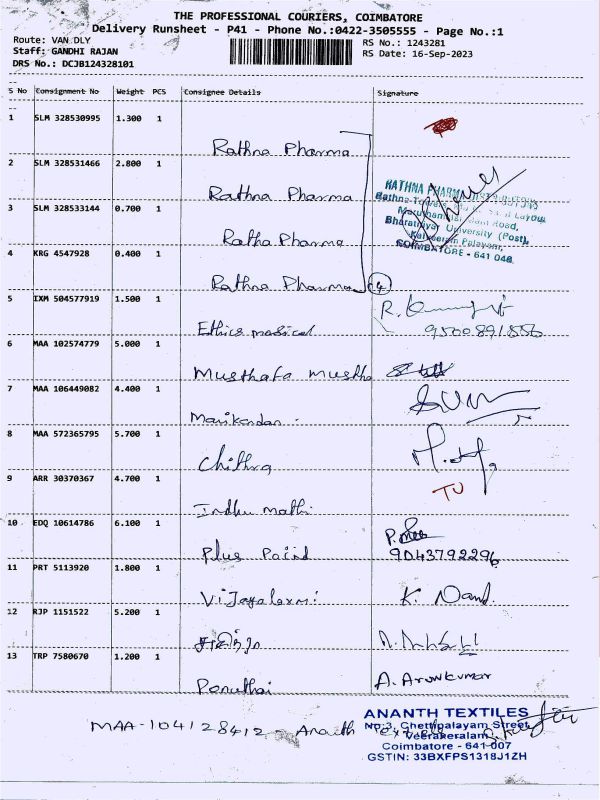 THE PROFESSIONAL COURIERS, COIMBATORE
Delivery Runsheet - P41 - Phone No.:0422-3505555 - Page No.:1
Route: VAN DLY
Staff: GANDHI RAJAN
DRS No.: DCJB124328101
RS No.: 1243281
RS Date: 16-Sep-2023
S No Consignment No Weight PCS Consignee Details Signature
1 SLM 328530995 1.300 1
Rathna Pharma
2 SLM 328531466 2.800 1
Rathna Pharma
3 SLM 328533144 0.700 1
Ratha Pharma
4 KRG 4547928 0.400 1
Rathna Pharma 4
RATHNA PHARMA
Bharathiyar University (Post),
COIMBATORE - 641 046
5 IXM 504577919 1.500 1
Ethics medical
6 MAA 102574779 5.000 1
Musthafa Mustha
7 MAA 106449082 4.400 1
Manikandan
8 MAA 572365795 5.700 1
Chithra
9 ARR 30370367 4.700 1
Indhu mathi
10 EDQ 10614786 6.100 1
Plus Poind 9043792296
11 PRT 5113920 1.800 1
Vijayalaxmi K. Nand.
12 RJP 1151522 5.200 1
13 TRP 7580670 1.200 1
Ponuthai A. Arunkumar
MAA-104128412 - Ananth
ANANTH TEXTILES
No:3, Chettipalayam Street,
Veerakeralam,
Coimbatore - 641 007
GSTIN: 33BXFPS1318J1ZH